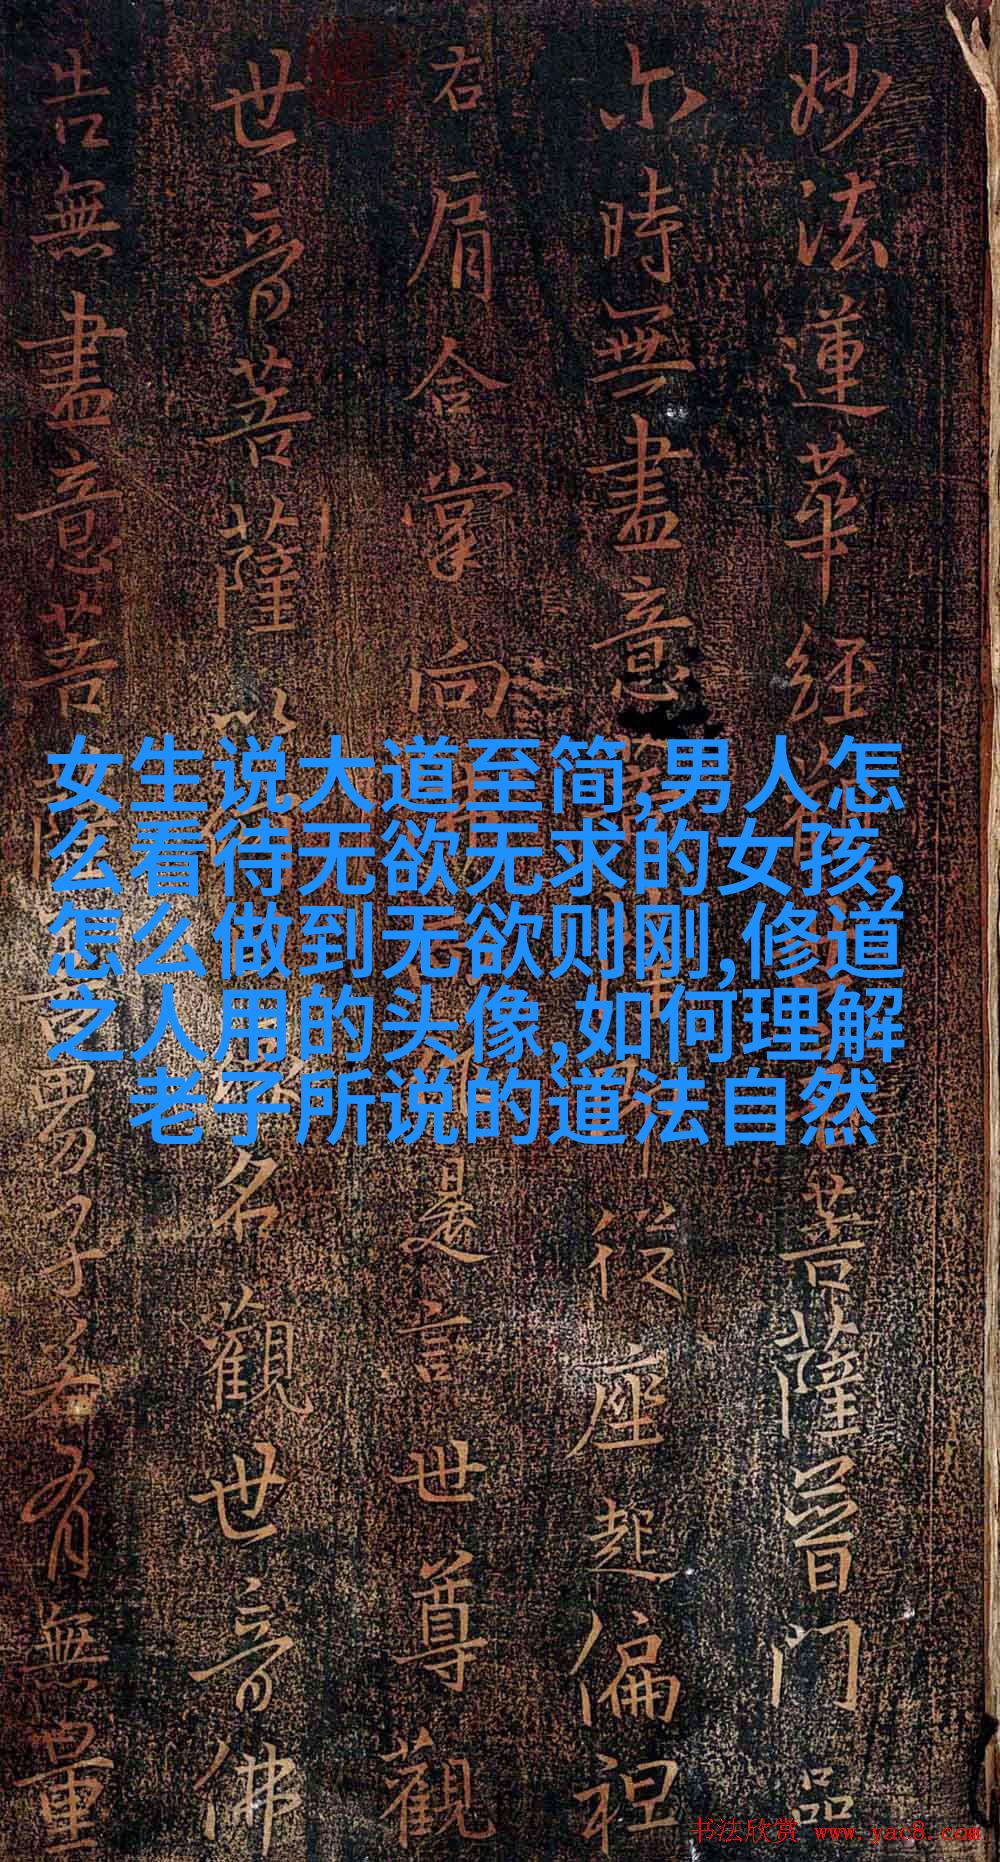 妙法蓮華經菩薩普門品
尒時無盡意從座起偏袒
右肩合掌向是言世尊觀
世音菩薩以名觀世音佛
告無盡意菩男子若有無量
女生说大道至简,男人怎
么看待无欲无求的女孩,
怎么做到无欲则刚,修道
之人用的头像,如何理解
老子所说的道法自然
书法欣赏 www.yac8.com